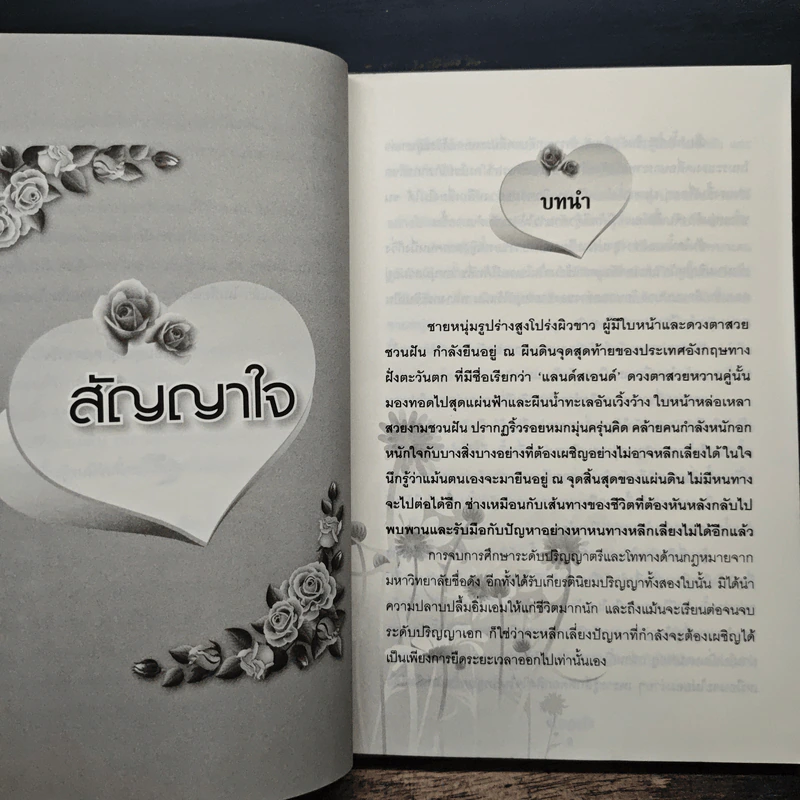 สัญญาใจ
บทนำ
ชายหนุ่มรูปร่างสูงโปร่งผิวขาว ผู้มีใบหน้าและดวงตาสวย
ชวนฝัน กำลังยืนอยู่ ณ ผืนดินจุดสุดท้ายของประเทศอังกฤษทาง
ฝั่งตะวันตก ที่มีชื่อเรียกว่า ‘แลนด์สเอนด์’ ดวงตาสวยหวานคู่นั้น
มองทอดไปสุดแผ่นฟ้าและผืนน้ำทะเลอันเวิ้งว้าง ใบหน้าหล่อเหลา
สวยงามชวนฝัน ปรากฏริ้วรอยหมกมุ่นครุ่นคิด คล้ายคนกำลังหนักอก
หนักใจกับบางสิ่งบางอย่างที่ต้องเผชิญอย่างไม่อาจหลีกเลี่ยงได้ ในใจ
นึกรู้ว่าแม้นตนเองจะมายืนอยู่ ณ จุดสิ้นสุดของแผ่นดิน ไม่มีหนทาง
จะไปต่อได้อีก ช่างเหมือนกับเส้นทางของชีวิตที่ต้องหันหลังกลับไป
พบพานและรับมือกับปัญหาอย่างหาหนทางหลีกเลี่ยงไม่ได้อีกแล้ว
การจบการศึกษาระดับปริญญาตรีและโททางด้านกฎหมายจาก
มหาวิทยาลัยชื่อดัง อีกทั้งได้รับเกียรตินิยมปริญญาทั้งสองใบนั้น มิได้นำ
ความปลาบปลื้มอิ่มเอมให้แก่ชีวิตมากนัก และถึงแม้นจะเรียนต่อจนจบ
ระดับปริญญาเอก ก็ใช่ว่าจะหลีกเลี่ยงปัญหาที่กำลังจะต้องเผชิญได้
เป็นเพียงการยืดระยะเวลาออกไปเท่านั้นเอง